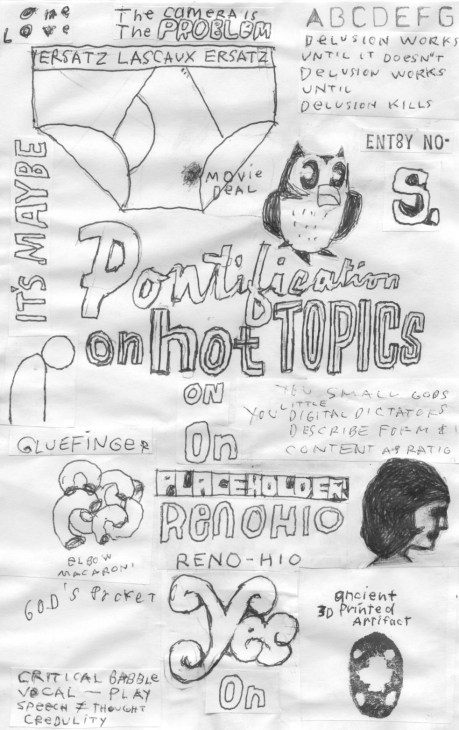 One
Love
The camera is
The PROBLEM
ABCDEFG
DELUSION WORKS
UNTIL IT DOESN'T
DELUSION WORKS
UNTIL
DELUSION KILLS
ERSATZ LASCAUX ERSATZ
MOVIE
DEAL
ENT8Y NO-
S.
IT'S MAYBE
Pontification
on hot TOPICS
ON
On
YOU SMALL GODS
LITTLE
YOU DIGITAL DICTATORS
DESCRIBE FORM &
CONTENT AS RATIO
GLUEFINGER
ELBOW
MACARONI
PLACEHOLDER
RENOHIO
RENO-HIO
GOD'S POCKET
Yes
On
ancient
3D Printed
Artifact
CRITICAL BABBLE
VOCAL — PLAY
SPEECH ≠ THOUGHT
CREDULITY